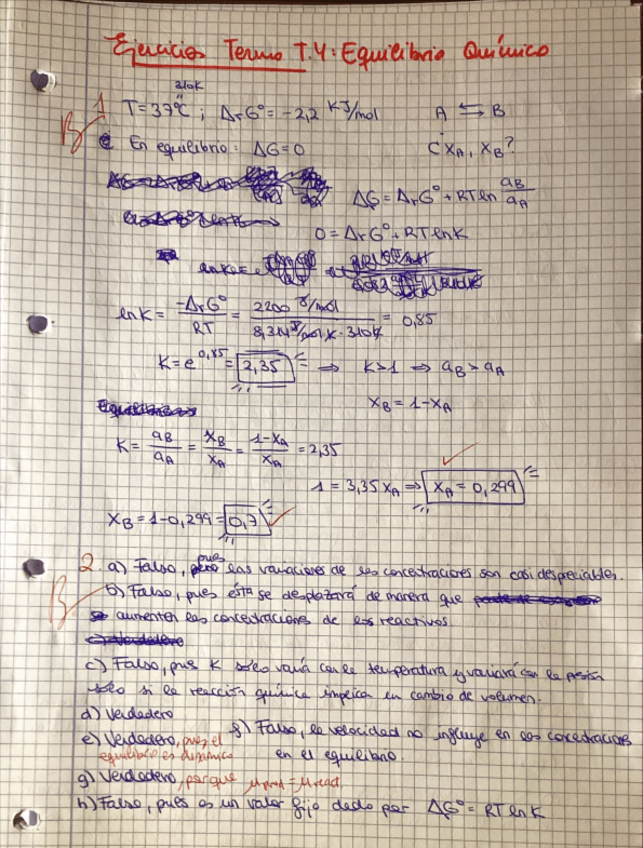 Ejercicios Termo T.4: Equilibrio Químico
310K
"
1 T=37ºC ; ΔrGº= -2,2 KJ/mol A ⇆ B
B
En equilibrio: ΔG=0 ¿xA, xB?
ΔG = ΔrGº + RT ln aB/aA
0 = ΔrGº + RT lnK
lnK = -ΔrGº/RT = 2200 J/mol / 8,314 J/mol K · 310K = 0,85
K = e^0,85 = 2,35 ⇒ K>1 ⇒ aB > aA
xB = 1-xA
K = aB/aA = xB/xA = 1-xA/xA = 2,35
1 = 3,35 xA ⇒ xA = 0,299
xB = 1-0,299 = 0,7
2. a) Falso, pues las variaciones de las concentraciones son casi despreciables.
B
b) Falso, pues ésta se desplazará de manera que
aumenten las concentraciones de los reactivos.
c) Falso, pues K sólo varía con la temperatura y variará con la presión
sólo si la reacción química implica un cambio de volumen.
d) Verdadero
e) Verdadero, pues el
equilibrio es dinámico
g) Falso, la velocidad no influye en las concentraciones
en el equilibrio.
g) Verdadero, porque μprod = μreact
h) Falso, pues es un valor fijo dado por ΔGº = RT lnK